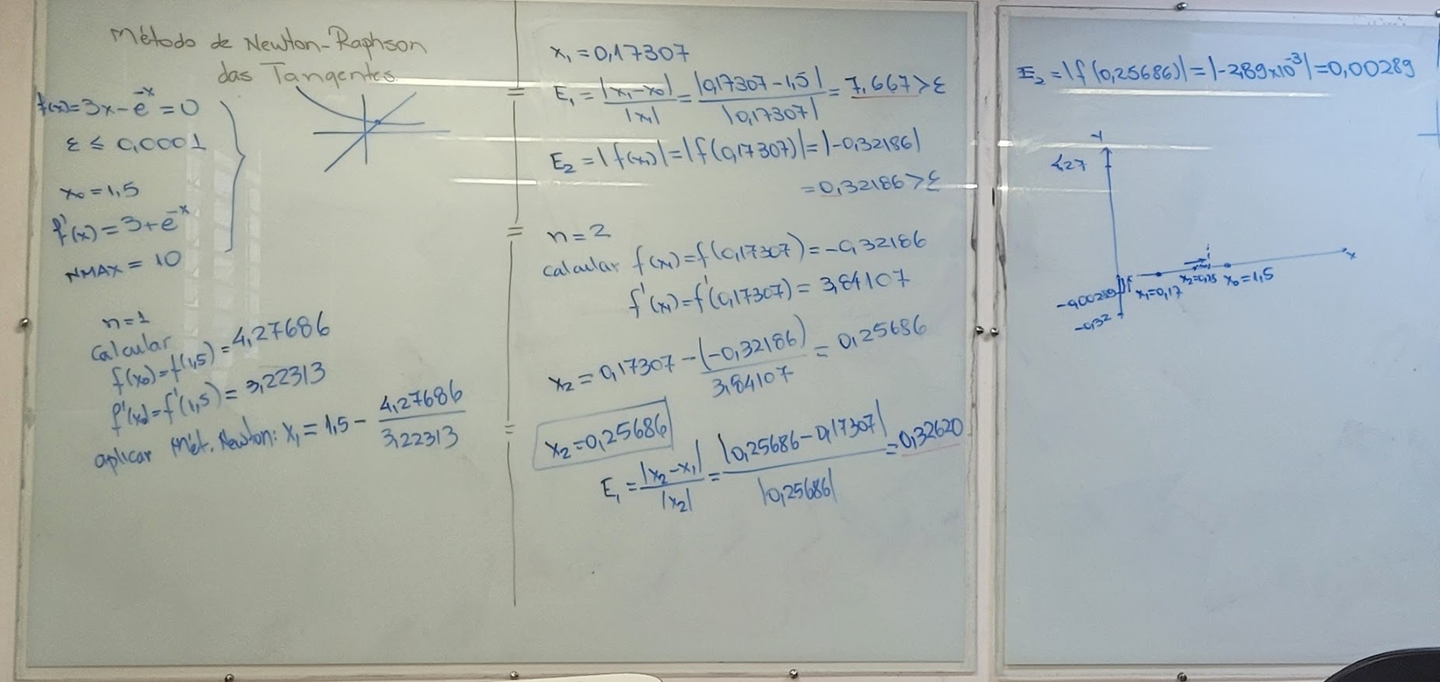 Método de Newton-Raphson
das Tangentes
f(x)=3x-e^-x=0
ε ≤ 0,0001
x₀=1,5
f'(x)=3+e^-x
NMAX=10
n=1
Calcular
f(x₀)=f(1,5)=4,27686
f'(x₀)=f'(1,5)=3,22313
aplicar Mét. Newton: x₁=1,5-4,27686/3,22313
x₁=0,17307
E₁=|x₁-x₀|/|x₁|=|0,17307-1,5|/|0,17307|=7,667>ε
E₂=|f(x₁)|=|f(0,17307)|=|-0,32186|
=0,32186>ε
n=2
calcular f(x₁)=f(0,17307)=-0,32186
f'(x₁)=f'(0,17307)=3,84107
x₂=0,17307-(-0,32186)/3,84107=0,25686
x₂=0,25686
E₁=|x₂-x₁|/|x₂|=|0,25686-0,17307|/|0,25686|=0,32620
E₂=|f(0,25686)|=|-2,89x10^-3|=0,00289
Y
4,27
x
x₁=0,17
x₂=0,25
x₀=1,5
-0,00289
-0,32